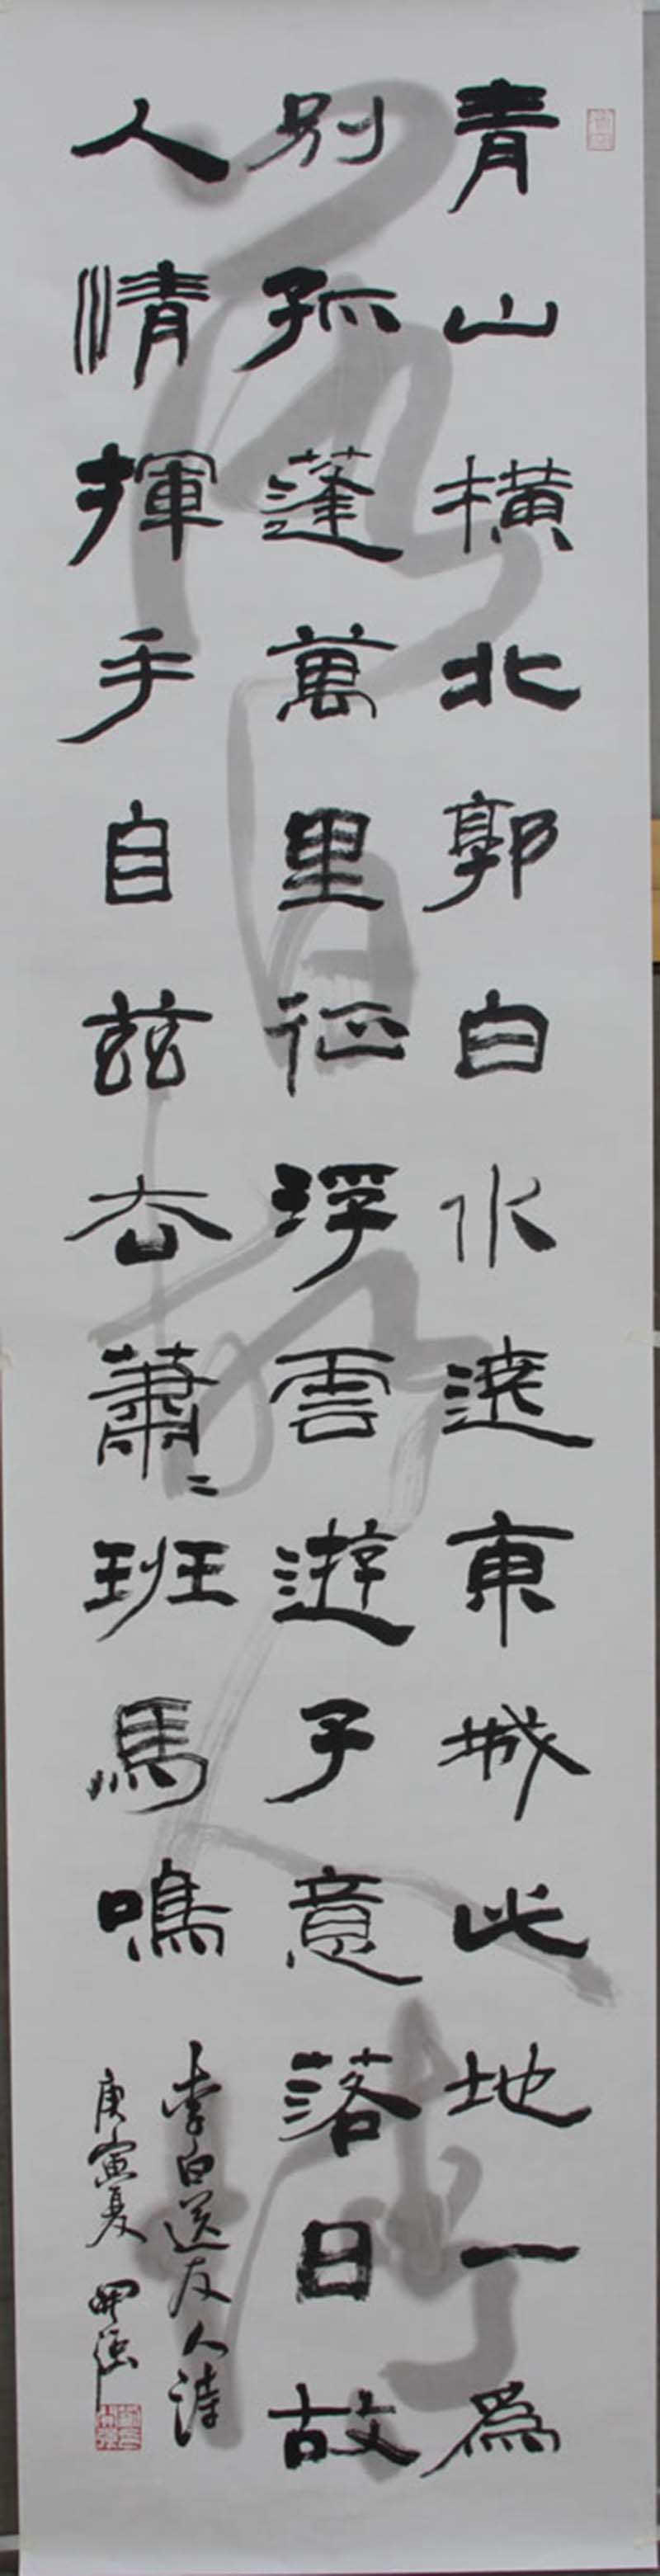 青山橫北郭白水遶東城此地一爲
別孤蓬萬里征浮雲遊子意落日故
人情揮手自茲去蕭〻班馬鳴
李白送友人詩
庚寅夏